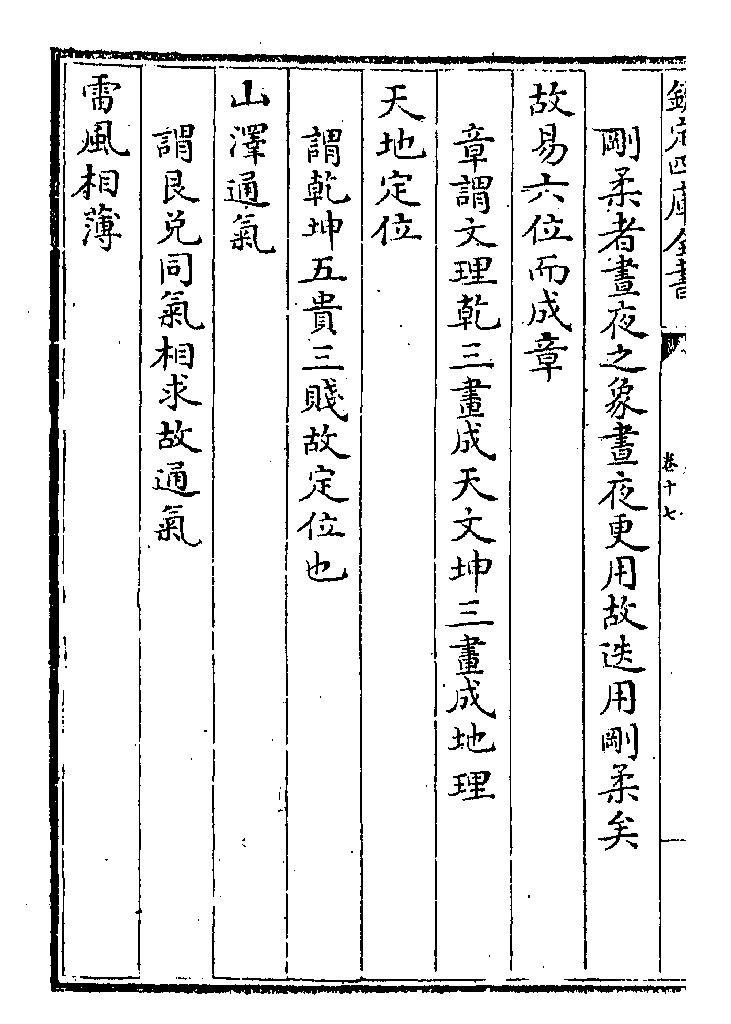 欽定四庫全書
卷十七
剛柔者晝夜之象晝夜更用故迭用剛柔矣
故易六位而成章
章謂文理乾三畫成天文坤三畫成地理
天地定位
謂乾坤五貴三賤故定位也
山澤通氣
謂艮兌同氣相求故通氣
雷風相薄